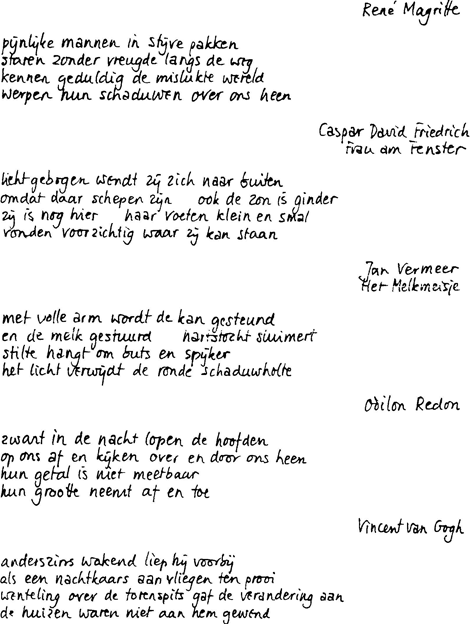 René Magritte
pijnlijke mannen in stijve pakken
staren zonder vreugde langs de weg
kennen geduldig de mislukte wereld
werpen hun schaduwen over ons heen
Caspar David Friedrich
Frau am Fenster
licht gebogen wendt zij zich naar buiten
omdat daar schepen zijn ook de zon is ginder
zij is nog hier haar voeten klein en smal
vonden voorzichtig waar zij kan staan
Jan Vermeer
Het Melkmeisje
met volle arm wordt de kan gesteund
en de melk gestuurd hartstocht sluimert
stilte hangt om buts en spijker
het licht verwijdt de ronde schaduwholte
Odilon Redon
zwart in de nacht lopen de hoofden
op ons af en kijken over en door ons heen
hun getal is niet meetbaar
hun grootte neemt af en toe
Vincent van Gogh
anderszins wakend liep hij voorbij
als een nachtkaars aan vliegen ten prooi
wenteling over de torenspits gaf de verandering aan
de huizen waren niet aan hem gewend